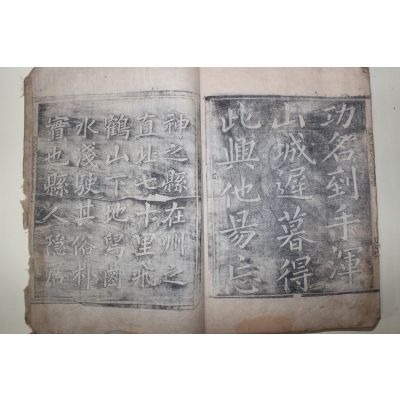 功名到手渾
山城遲暮得
此興他易忘
神之縣在州之
直北七十里飛
鶴山下地
水淺駛其俗朴
實也縣人隱居